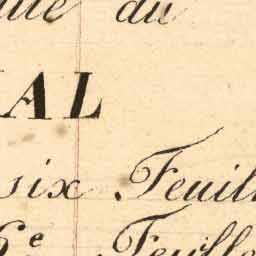 du
AL
six Feuill
6e Feuille